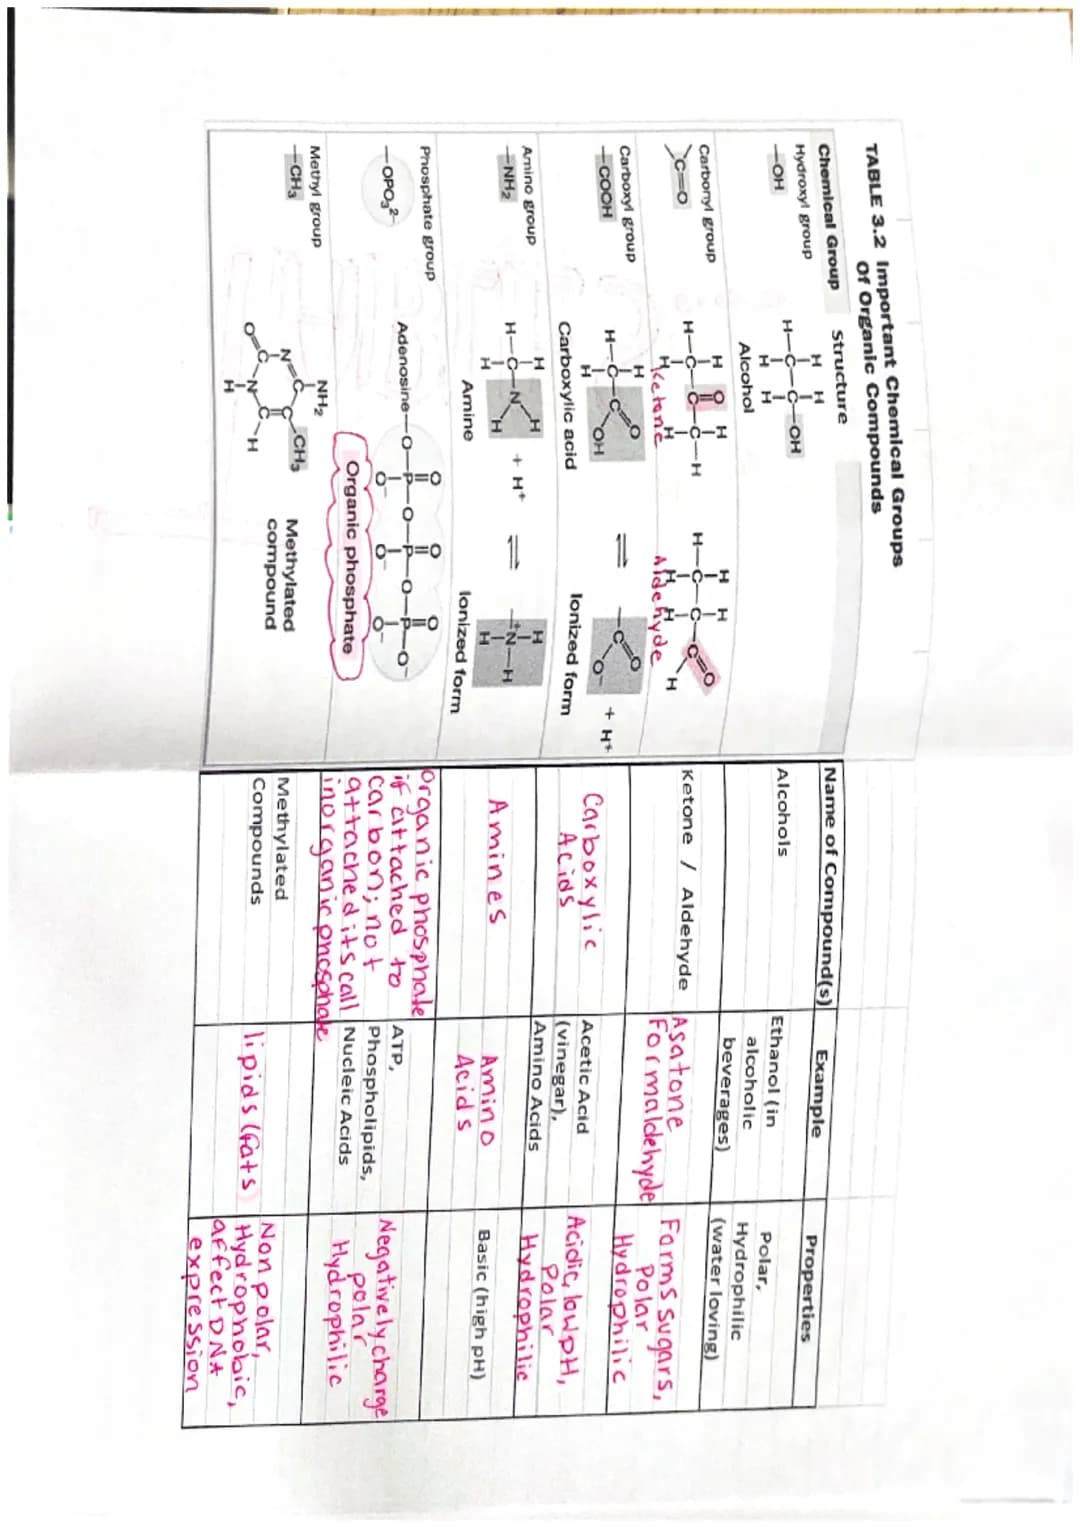 TABLE 3.2 Important Chemical Groups
of Organic Compounds
Chemical Group Structure
Name of Compound(s) Example Properties
Hydroxyl group
—OH
H H
H—C—C—OH
H H
Alcohol
Alcohols
Ethanol (in
alcoholic
beverages)
Polar,
Hydrophilic
(water loving)
Carbonyl group
C=O
H O H
H—C—C—C—H
H H
Ketone
H H
H—C—C—C=O
H H H
Aldehyde
Ketone / Aldehyde
Asatone
Formaldehyde
Forms sugars,
Polar
Hydrophilic
Carboxyl group
—COOH
H
H—C—C=O
H OH
Carboxylic acid
⇌
—C=O
O⁻ + H⁺
Ionized form
Carboxylic
Acids
Acetic Acid
(vinegar),
Amino Acids
Acidic, low pH,
Polar
Hydrophilic
Amino group
—NH₂
H H
H—C—N + H⁺
H H
Amine
⇌
H
—⁺N—H
H
Ionized form
Amines
Amino
Acids
Basic (high pH)
Phosphate group
—OPO₃²⁻
O O O
Adenosine—O—P—O—P—O—P—O⁻
O⁻ O⁻ O⁻
Organic phosphate
organic phosphate
if attached to
carbon; not
attached its call
inorganic phosphate
ATP,
Phospholipids,
Nucleic Acids
Negatively charge
polar
Hydrophilic
Methyl group
—CH₃
NH₂
N C C CH₃
O=C N C—H
H
Methylated
compound
Methylated
Compounds
lipids (fats)
Nonpolar,
Hydrophobic,
affect DNA
expression